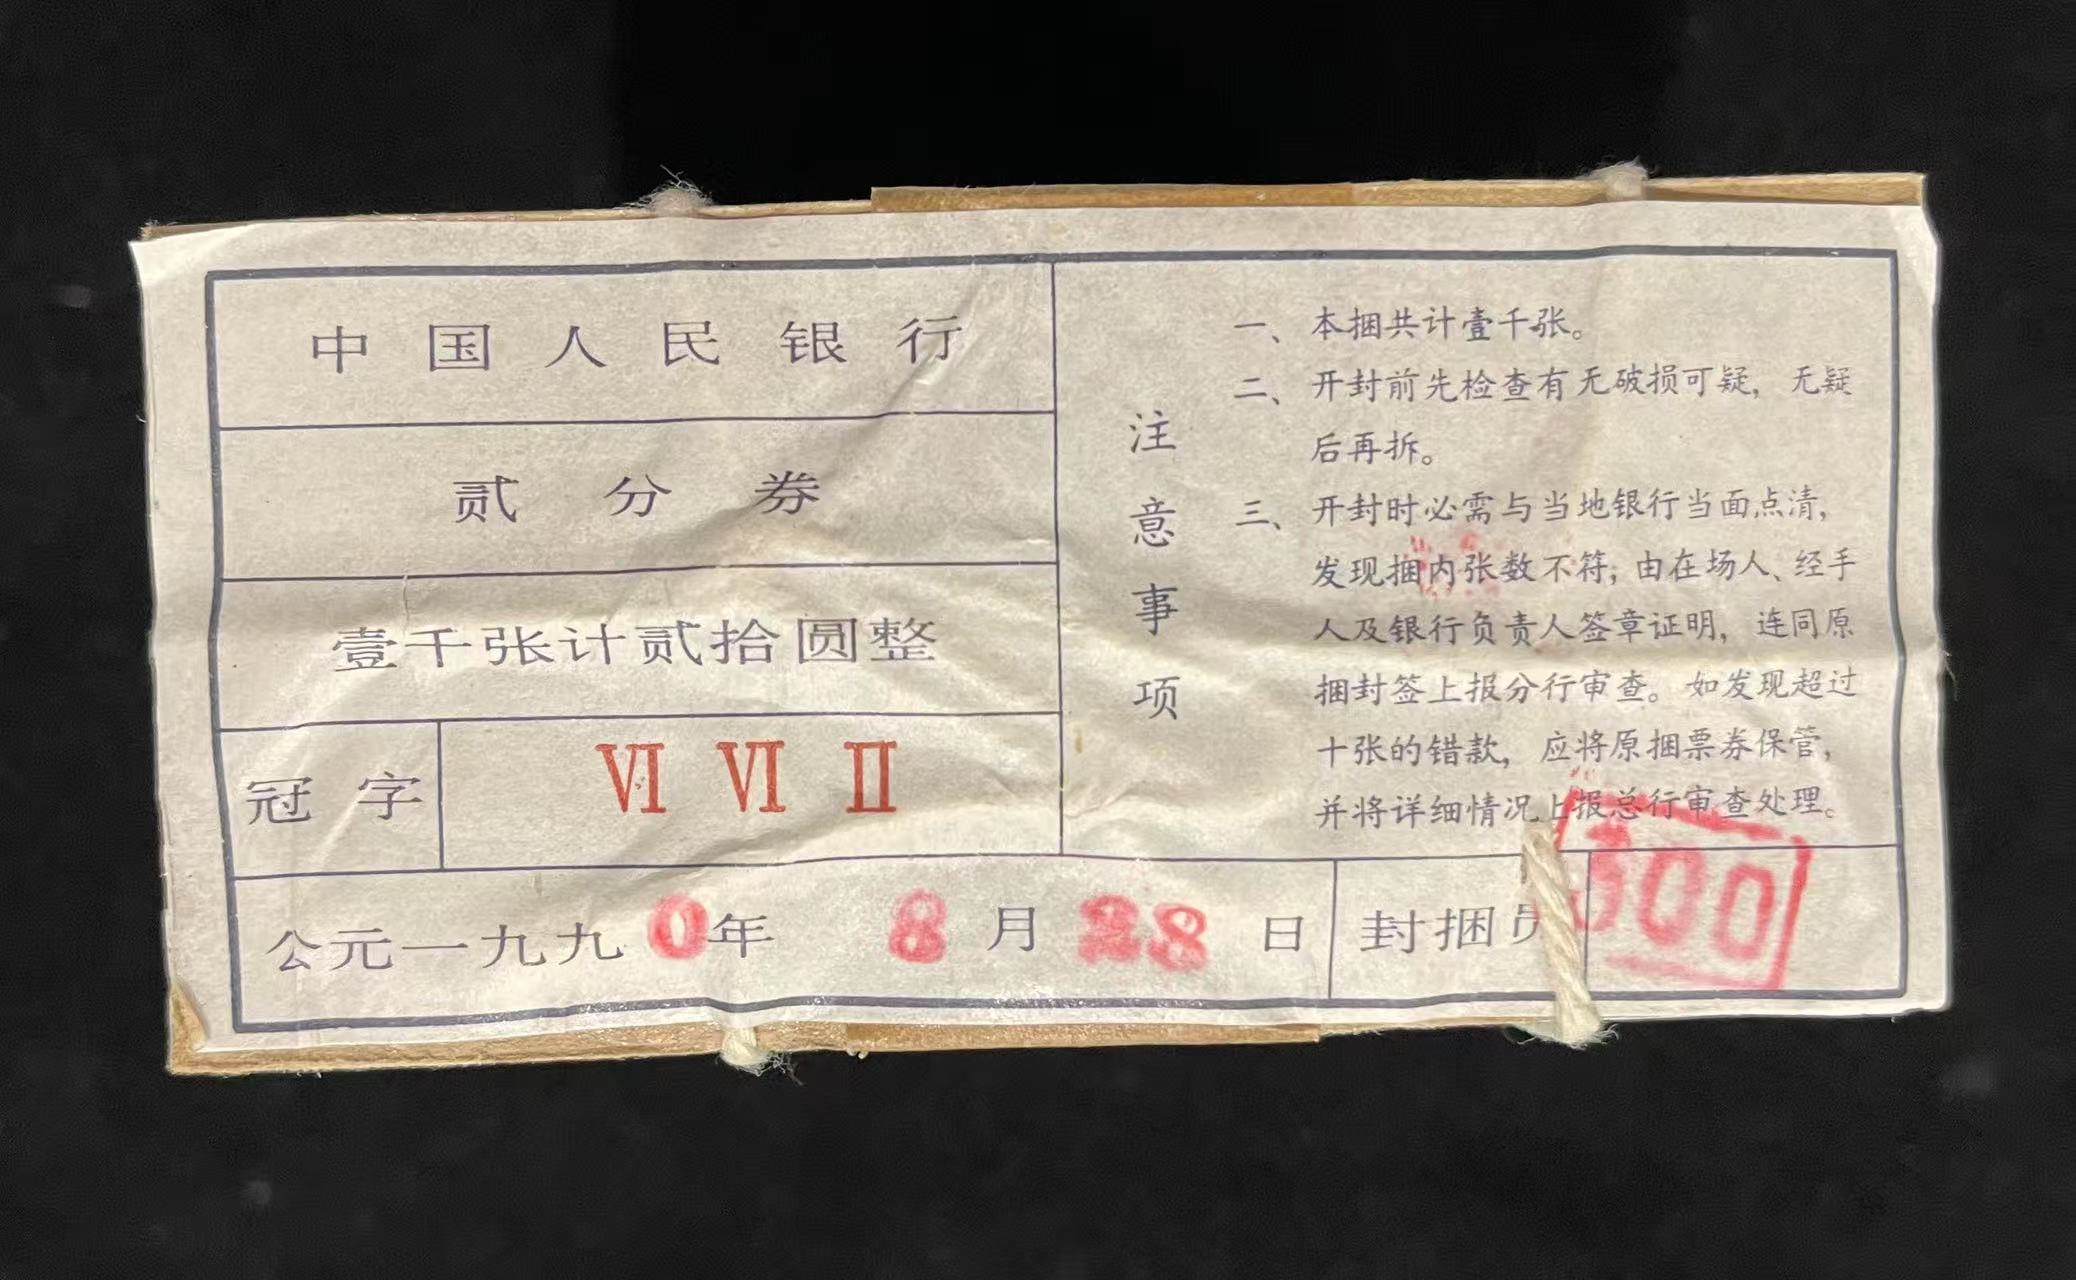 中国人民银行
贰分券
壹千张计贰拾圆整
冠字 Ⅵ Ⅵ Ⅱ
注意事项
一、本捆共计壹千张。
二、开封前先检查有无破损可疑，无疑
后再拆。
三、开封时必需与当地银行当面点清，
发现捆内张数不符；由在场人、经手
人及银行负责人签章证明，连同原
捆封签上报分行审查。如发现超过
十张的错款，应将原捆票券保管，
并将详细情况上报总行审查处理。
公元一九九0年 8月28日 封捆员